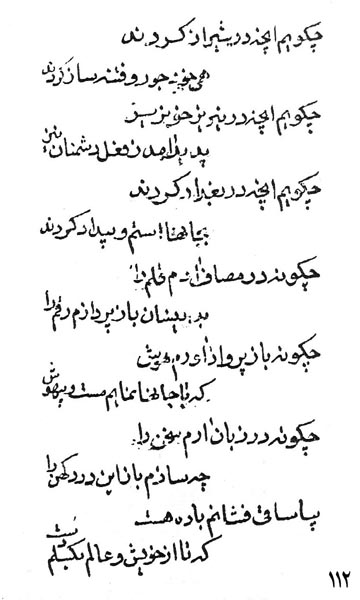 چگویم انچه در شیراز کردند
همی جورو فتنه ساز کردند
چگویم انچه در تبریز خونریز
پدید امد ز فعل دشمنان تیز
چگویم انچه در بغداد کردند
بجانها استم و بیداد کردند
چگونه در مصاف ارم قلم را
بدینسان باز پردازم رقم را
چگونه باز پرواز اورم پیش
که تا جانها نمایم مست و بیهوش
چگونه در زبان ارم سخن را
چه سازم باز این درد کهن را
بیا ساقی فشانم باده هست
که تا از خویش و عالم بگسلم
۱۱۲